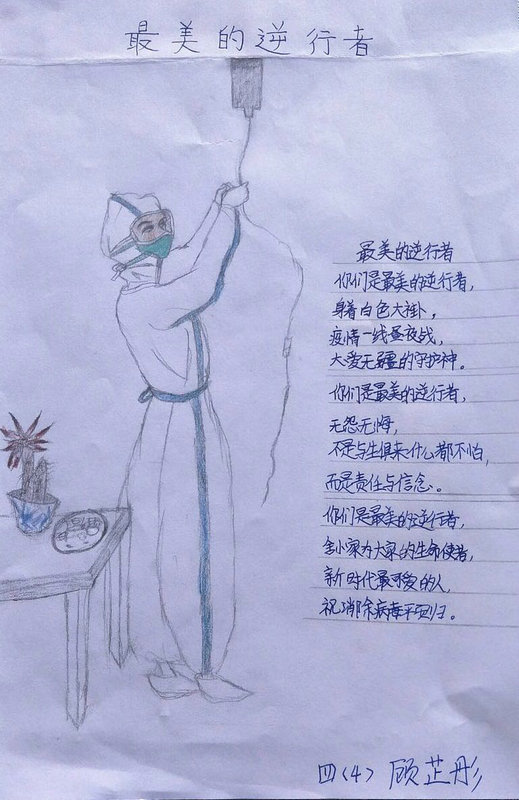 最美的逆行者
最美的逆行者
你们是最美的逆行者,
身着白色大褂,
疫情一线昼夜战,
大爱无疆的守护神。
你们是最美的逆行者,
无怨无悔,
不是与生俱来什么都不怕,
而是责任与信念。
你们是最美的逆行者,
舍小家为大家的生命使者,
新时代最可爱的人,
祝消除病毒平安归。
四(4) 顾芷彤